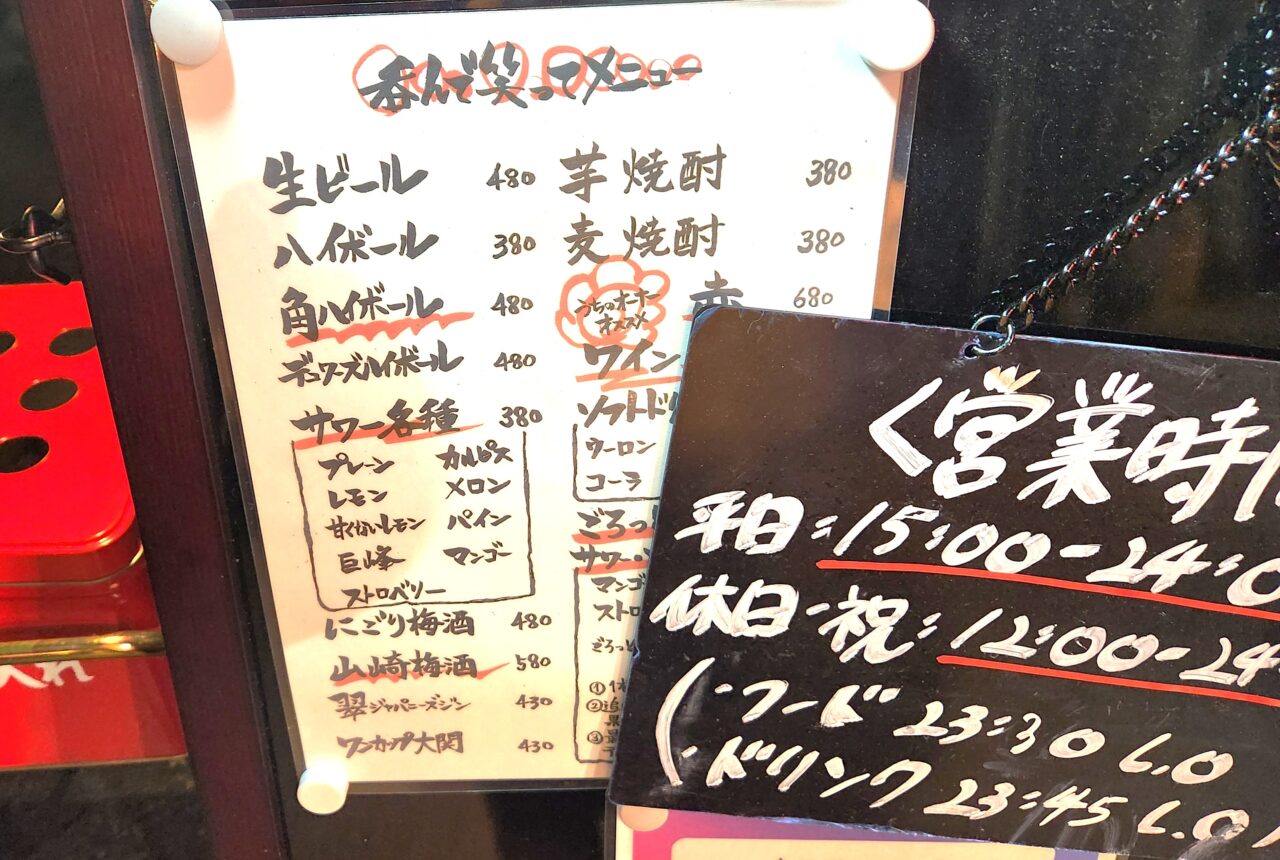 呑んで笑ってメニュー
生ビール 480
ハイボール 380
角ハイボール 480
デュワーズハイボール 480
サワー各種 380
プレーン カルピス
レモン メロン
甘くないレモン パイン
巨峰 マンゴー
ストロベリー
にごり梅酒 480
山崎梅酒 580
翠ジャパニーズジン 430
ワンカップ大関 430
芋焼酎 380
麦焼酎 380
うちのオーナー
オススメ
赤 680
ワイン
ソフトドリ
ウーロン
コーラ
ごろっ
サワー
マンゴ
ストロ
ごろっと
①
②追
果
③
<営業時
平日:15:00-24:0
休日・祝:12:00-24
(・フード 23:30 L.O
・ドリンク 23:45 L.O
入れ